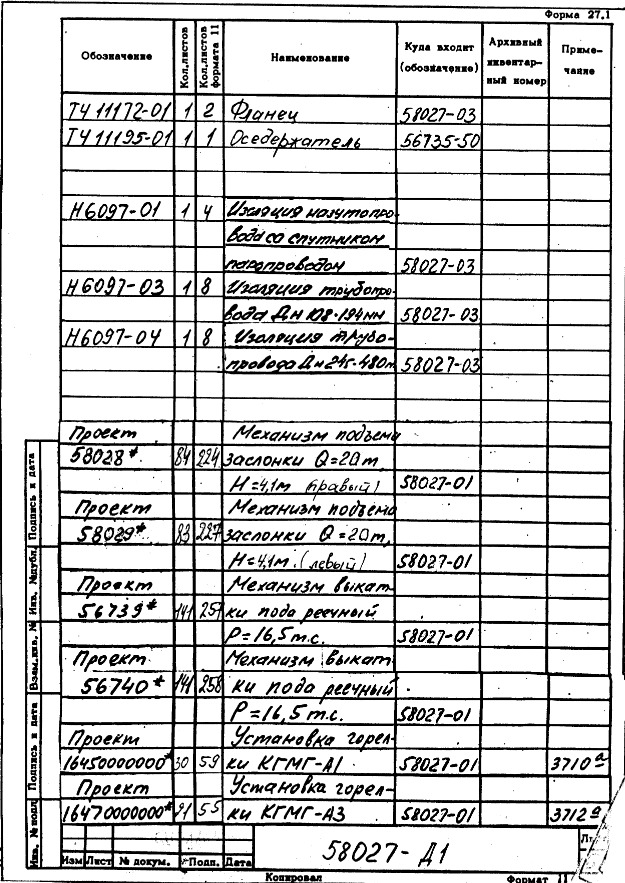 Форма 27.1
Обозначение Кол.листов Кол.листов формата 11 Наименование Куда входит (обозначение) Архивный инвентарный номер Примечание
ТЧ 11172-01 1 2 Фланец 58027-03
ТЧ 11195-01 1 1 Оседержатель 56735-50
Н6097-01 1 4 Изоляция мазутопро-
вода со спутником
паропроводом 58027-03
Н6097-03 1 8 Изоляция трубопро-
вода Дн 108-194мм 58027-03
Н6097-04 1 8 Изоляция трубо-
провода Дн 245-480м 58027-03
Проект Механизм подъема
58028* 84 224 заслонки Q=20т,
Н=4,1м (правый) 58027-01
Проект Механизм подъема
58029* 83 227 заслонки Q=20т,
Н=4,1м. (левый) 58027-01
Проект Механизм выкат-
56739* 141 257 ки пода реечный
Р=16,5т.с. 58027-01
Проект Механизм выкат-
56740* 141 258 ки пода реечный
Р=16,5т.с. 58027-01
Проект Установка горел-
16450000000* 30 59 ки КГМГ-А1 58027-01 3710а
Проект Установка горел-
16470000000* 31 55 ки КГМГ-А3 58027-01 3712а
Инв. № подл Подпись и дата Взам.инв. № Инв. №дубл. Подпись и дата
58027-Д1
Изм Лист № докум. Подп. Дата
Копировал Формат 11